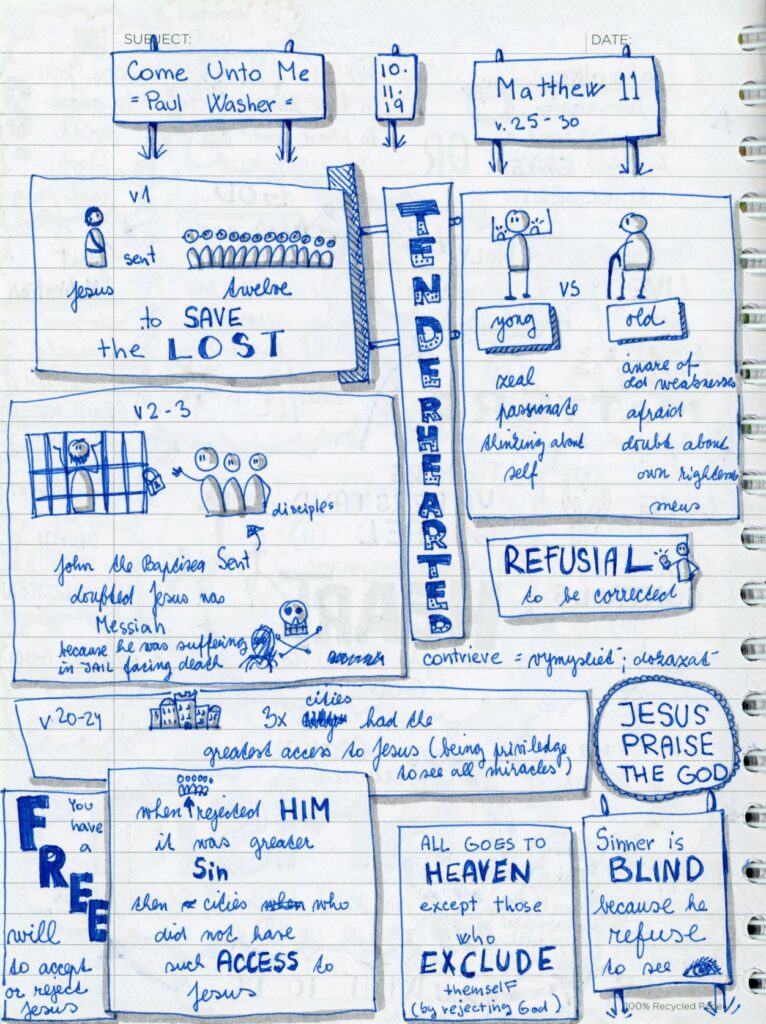 SUBJECT:
DATE:
Come Unto Me
= Paul Washer =
10.
11.
19
Matthew 11
v. 25-30
v1
sent
Jesus
twelve
to SAVE
the LOST
TENDERHEARTED
vs
yong
old
zeal
passionate
thinking about
self
aware of
old weaknesses
afraid
doubt about
own righteous
sness
v2-3
disciples
John the Baptised Sent
doubted Jesus was
Messiah
because he was suffering
in JAIL facing death
REFUSIAL
to be corrected
contrieve = vymyslieť; dokázať
v20-24
cities
3x had the
greatest access to Jesus (being priviledge
to see all miracles)
JESUS
PRAISE
THE GOD
FREE
You
have
a
will
to accept
or reject
Jesus
when rejected HIM
it was greater
Sin
then cities who
did not have
such ACCESS to
Jesus
ALL GOES TO
HEAVEN
except those
who
EXCLUDE
themself
(by rejecting God)
Sinner is
BLIND
because he
refuse
to see
100% Recycled Paper